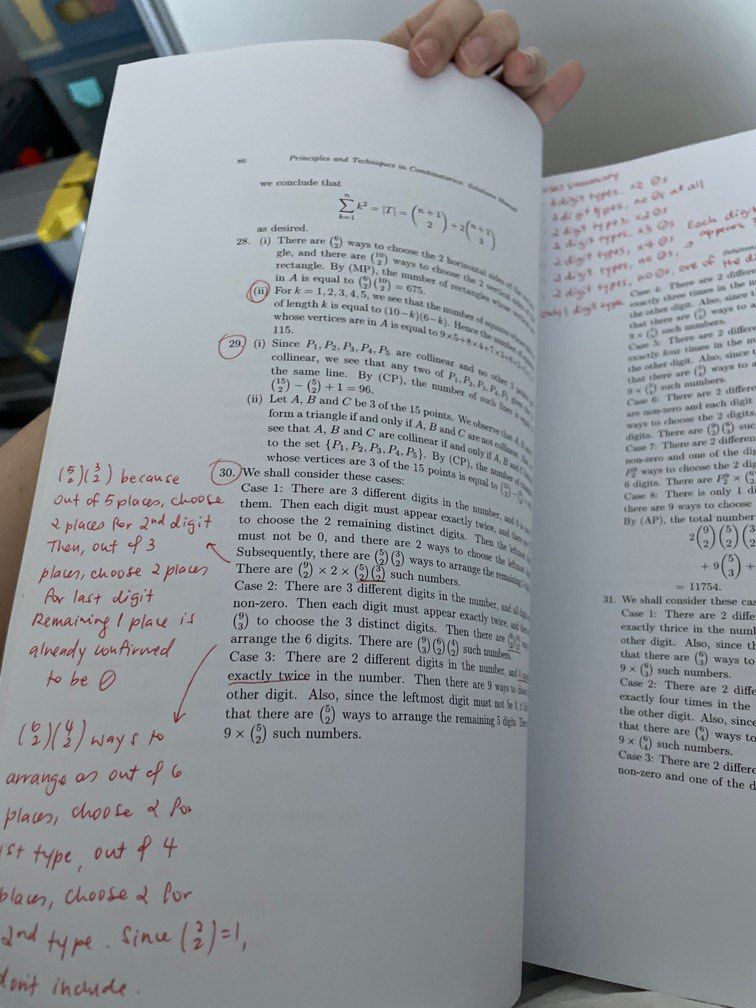 86 Principles and Techniques in Combinatorics: Solutions Manual
we conclude that
n
∑ k² = |T| = (n+1 2) + 2(n+1 3)
k=1
as desired.
28. (i) There are ways to choose the 2 horizontal sides of the
gle, and there are (10 2) ways to choose the 2 vertical sides of
rectangle. By (MP), the number of rectangles whose
in A is equal to (10 2) = 675.
(ii) For k = 1, 2, 3, 4, 5, we see that the number of squares
of length k is equal to (10−k)(6−k). Hence the number of
whose vertices are in A is equal to 9×5+8×4+7×3+6×
115.
29. (i) Since P₁, P₂, P₃, P₄, P₅ are collinear and no other 3 points
collinear, we see that any two of P₁, P₂, P₃, P₄, P₅
the same line. By (CP), the number of such lines is
(15 2) − (5 2) + 1 = 96.
(ii) Let A, B and C be 3 of the 15 points. We observe that A, B
form a triangle if and only if A, B and C are not collinear.
see that A, B and C are collinear if and only if A, B and C
to the set {P₁, P₂, P₃, P₄, P₅}. By (CP), the number of
whose vertices are 3 of the 15 points is equal to (15 3) −
30. We shall consider these cases:
Case 1: There are 3 different digits in the number, and 0 is
them. Then each digit must appear exactly twice, and there
to choose the 2 remaining distinct digits. Then the leftmost
must not be 0, and there are 2 ways to choose the leftmost
Subsequently, there are (5 2)(3 2) ways to arrange the remaining
There are (9 2) × 2 × (5 2)(3 2) such numbers.
Case 2: There are 3 different digits in the number, and all digits
non-zero. Then each digit must appear exactly twice, and
(9 3) to choose the 3 distinct digits. Then there are
arrange the 6 digits. There are (9 3)(6 2)(4 2) such numbers.
Case 3: There are 2 different digits in the number, and 0
exactly twice in the number. Then there are 9 ways to choose
other digit. Also, since the leftmost digit must not be 0, it
that there are (5 2) ways to arrange the remaining 5 digits.
9 × (5 2) such numbers.
(5 2)(3 2) because
out of 5 places, choose
2 places for 2nd digit
Then, out of 3
places, choose 2 places
for last digit
Remaining 1 place is
already confirmed
to be 0
(6 2)(4 2) ways to
arrange as out of 6
places, choose 2 for
1st type, out of 4
places, choose 2 for
2nd type. Since (2 2)=1,
don't include.
3 digit types, no 0s at all
2 digit types, x2 0s
2 digit types, x3 0s Each digit
2 digit types, x4 0s appears
2 digit types, no 0s,
2 digit types, no 0s, one of the di
only 1 digit type
Case 4: There are 2 differ
exactly three times in the n
the other digit. Also, since
that there are ways to
9 × such numbers.
Case 5: There are 2 differe
exactly four times in the nu
the other digit. Also, since
that there are ways to a
9 × such numbers.
Case 6: There are 2 differe
are non-zero and each digit
ways to choose the 2 digits
digits. There are suc
Case 7: There are 2 differen
non-zero and one of the dig
ways to choose the 2 dig
6 digits. There are
Case 8: There is only 1 d
there are 9 ways to choose
By (AP), the total number
2(9 2)(5 2)(3
+ 9(5 3) +
= 11754.
31. We shall consider these cas
Case 1: There are 2 differe
exactly thrice in the numb
other digit. Also, since th
that there are ways to
9 × such numbers.
Case 2: There are 2 diffe
exactly four times in the
the other digit. Also, since
that there are ways to
9 × such numbers.
Case 3: There are 2 differ
non-zero and one of the d